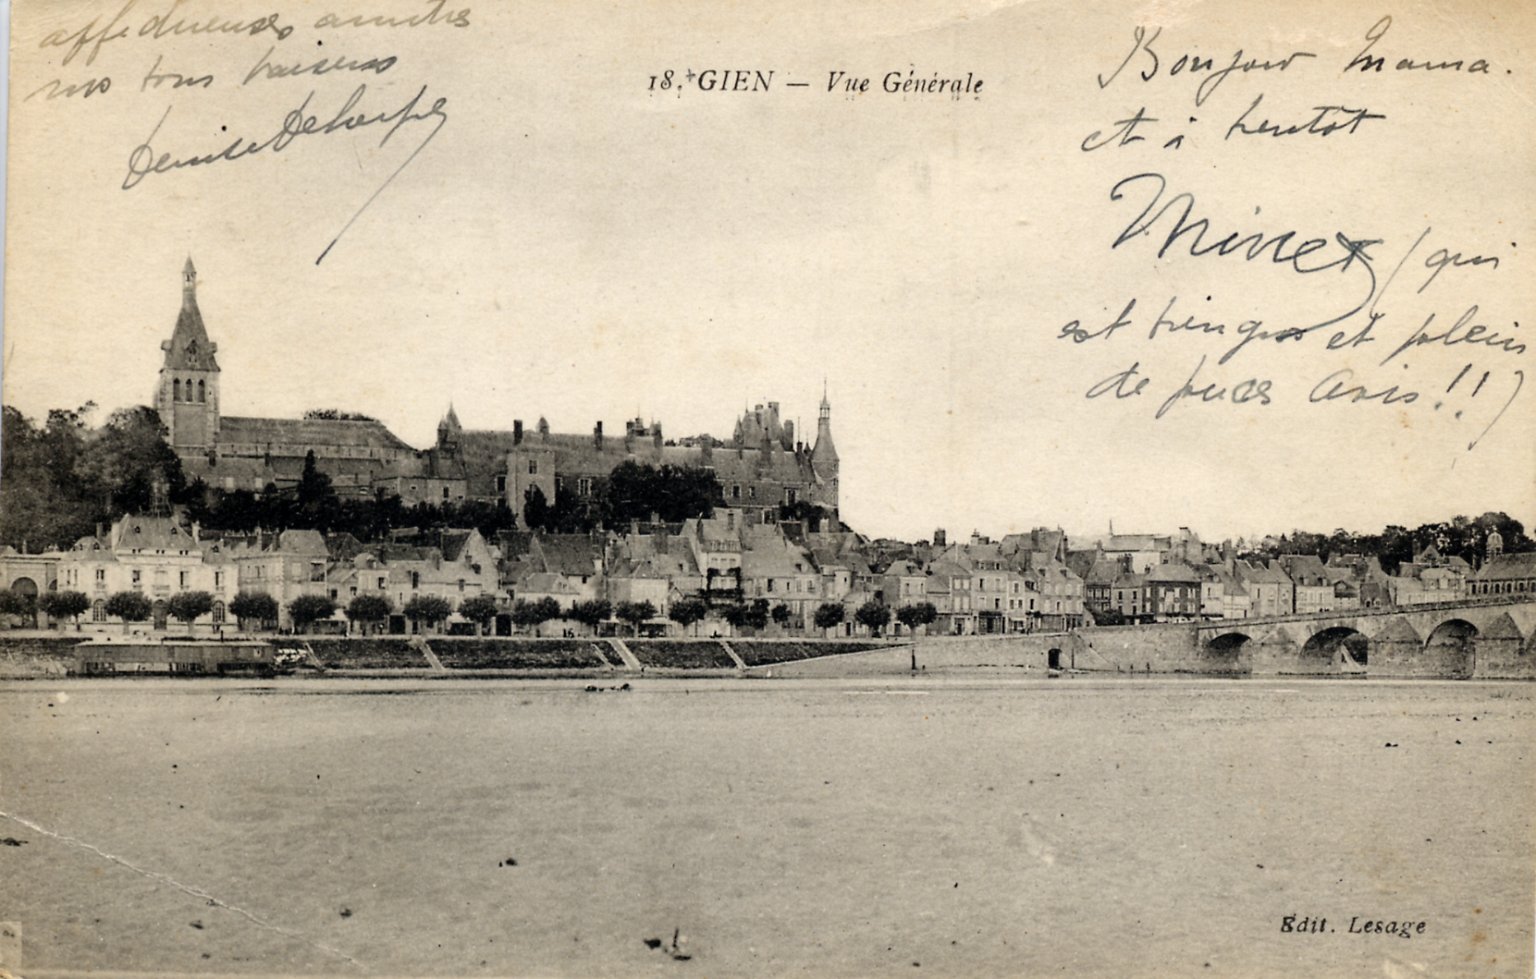 affectueuses amitiés
nos tous baisers
Denise
18. GIEN — Vue Générale
Bonjour Mama.
et à bientôt
Minet (qui
est et plein
de puces Avis!!)
Edit. Lesage